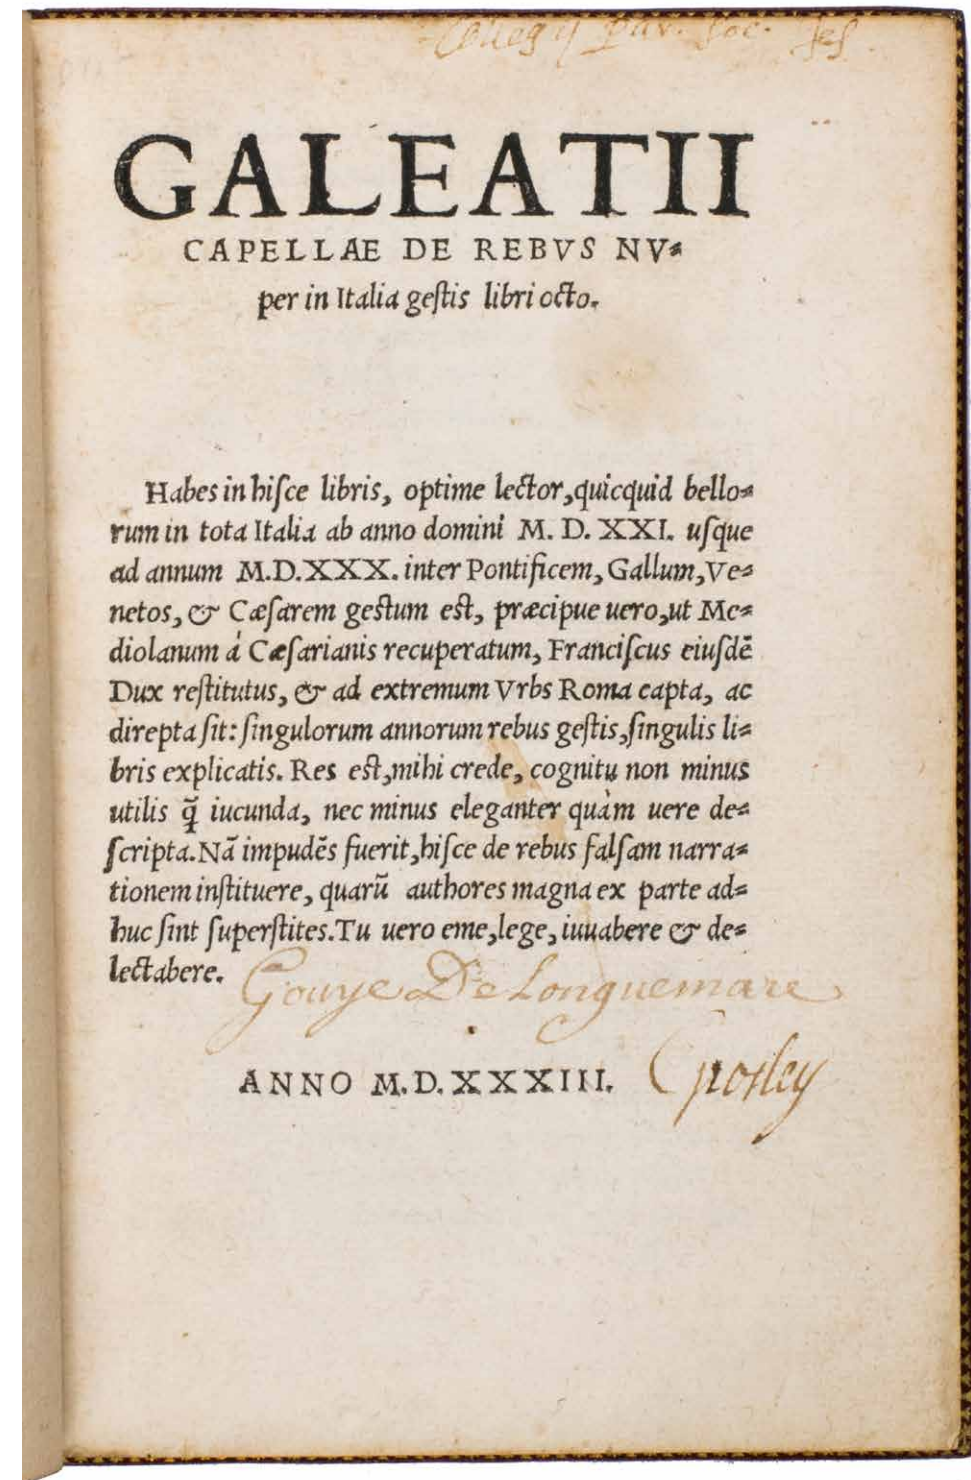 Collegij Par. Soc. Jes.
GALEATII
CAPELLAE DE REBVS NV-
per in Italia geſtis libri octo.
Habes in hiſce libris, optime lector, quicquid bello-
rum in tota Italia ab anno domini M. D. XXI. uſque
ad annum M.D.XXX. inter Pontificem, Gallum, Ve-
netos, & Cæſarem geſtum eſt, præcipue uero, ut Me-
diolanum á Cæſarianis recuperatum, Franciſcus eiuſdē
Dux reſtitutus, & ad extremum Vrbs Roma capta, ac
direpta ſit: ſingulorum annorum rebus geſtis, ſingulis li-
bris explicatis. Res eſt, mihi crede, cognitu non minus
utilis q̃ iucunda, nec minus eleganter quàm uere de-
ſcripta. Nā impudēs fuerit, hiſce de rebus falſam narra-
tionem inſtituere, quarū authores magna ex parte ad-
huc ſint ſuperſtites. Tu uero eme, lege, iuuabere & de-
lectabere.
Gouye De Longuemare
ANNO M.D.XXXIII.